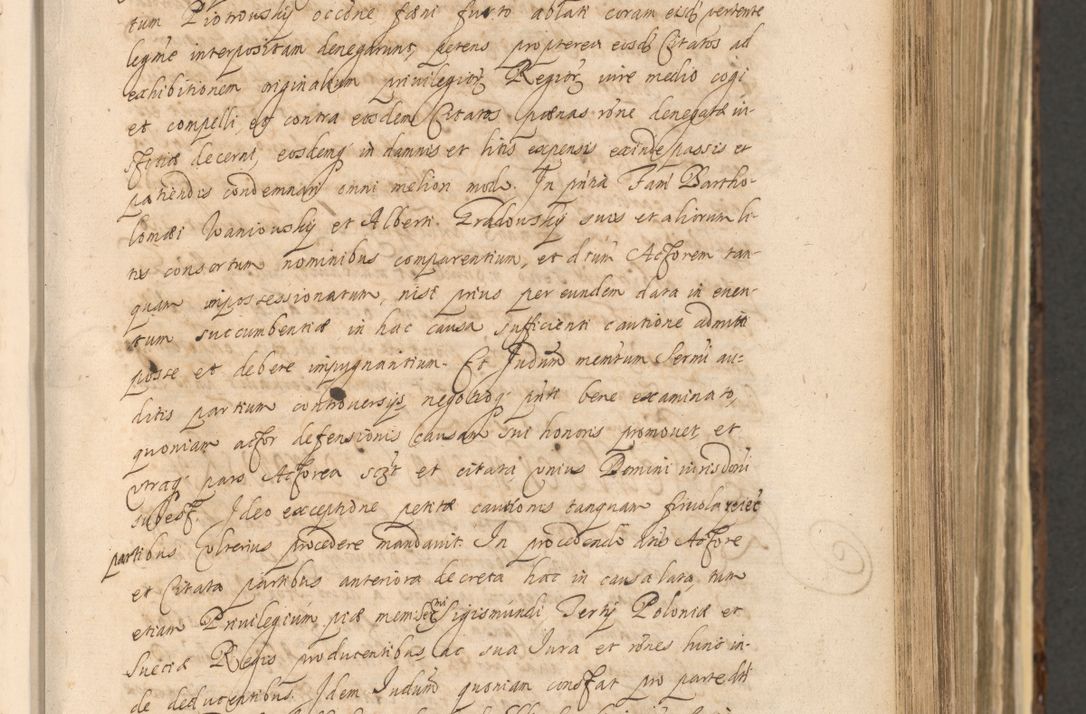 tum Piotrowskÿ occõne fæni furto ablati coram eisd. vertente
legme interpositam denegarunt, petens propterea eosd. Citatos ad
exhibitionem originalium privilegior. Regior. iure medio cogi
et compelli et contra eosdem Citatos pænas rõne denegatæ iu-
stitiæ decerni, eosdemq in damnis et litis expensis exinde passis et
patiendis condemnari omni meliori modo. In pntia Fam. Bartho-
lomæi Iwaniowskÿ et Alberti Gradowskÿ suis et aliorum li-
tis consortum nominibus comparentium, et dctum Actorem tan-
quam impossessionatum, nisi prius per eundem data in even-
tum succumbentiæ in hac causa sufficienti cautione admitti
posse et debere impugnantium. Et Judum mentum Sermi au-
ditis partium controversÿs negotioq pnti bene examinato,
quoniam actor defensionis causam sui honoris promovet et
utraq pars Actorea sczt et citata unius Domini iurisdoni
subest. Ideo exceptione petitæ cautionis tanquam frivola reiec
partibus ulterius procedere mandavit. In procedendo dnis Actore
et Citata partibus anteriora decreta hac in causa lata, tum
etiam Privilegium piæ mem: Sermi Sigismundi Tertÿ Poloniæ et
Sueciæ Regis producentibus, ac sua Iura et rões hinc in-
de deducentibus. Idem Judum quoniam constat pro parte dti